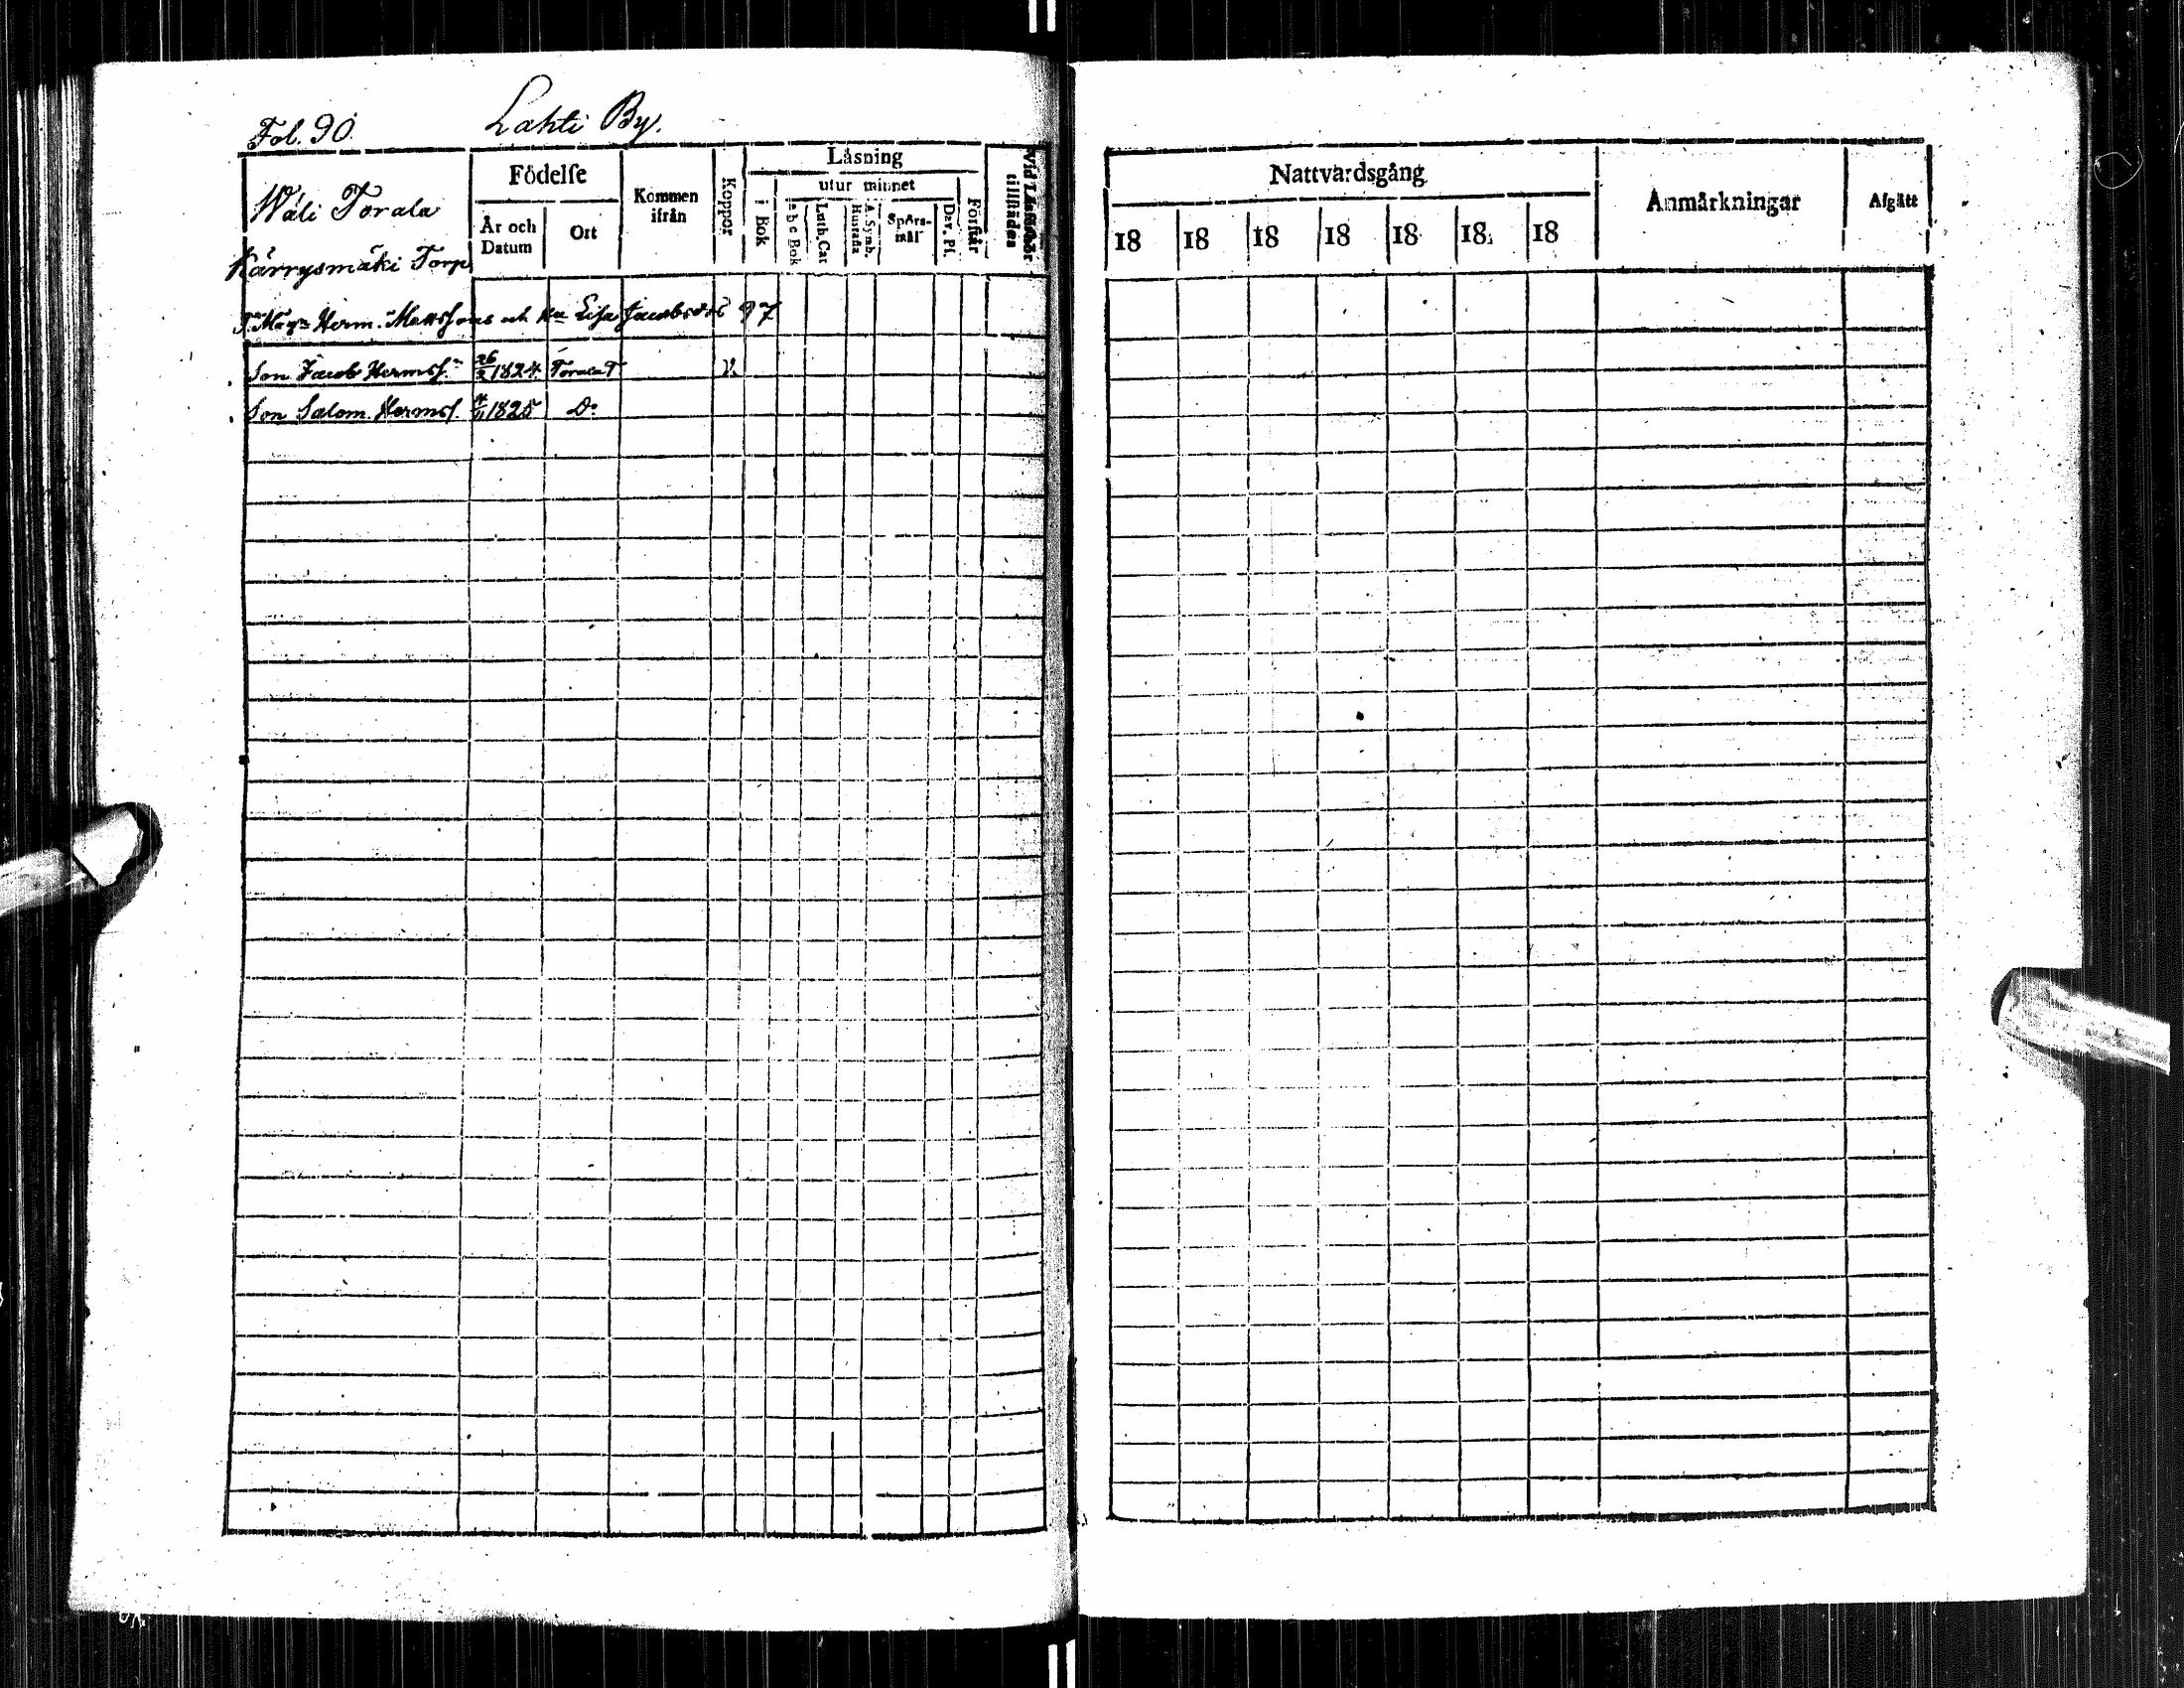 Fol. 90. Lahti By.
Wäli Torala
Kärrysmäki Torp
Födelse
År och Datum
Ort
Kommen ifrån
Koppor
Läsning
i Bok
utur minnet
a b c Bok
Luth. Cat
A. Symb. Hustafla
Spörsmål
Dav. Ps.
Förstår
Vid Läseförhör tillstädes
Herm. Mattssons och Lisa Jacobsd:s 97
Son Jacob Hermss:n 26/2 1824. Torala T v.
Son Salom. Hermss. 4/11 1825 D:o
Nattvardsgång
18 18 18 18 18 18 18
Anmärkningar
Afgått